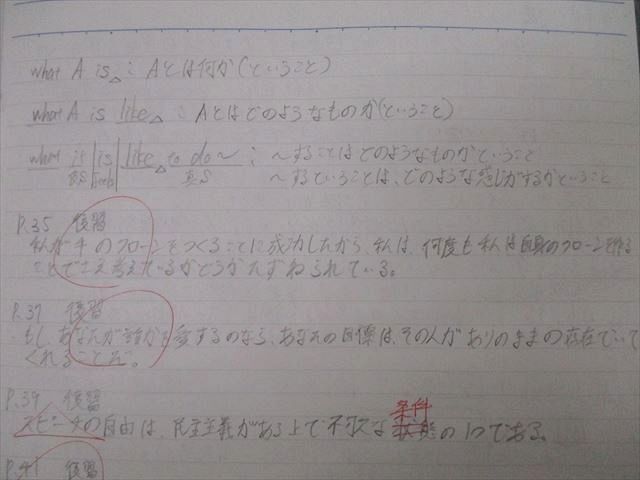 what A is△ : Aとは何か(ということ)
what A is like△ : Aとはどのようなものか(ということ)
what it is like△ to do～ : ～することはどのようなものかということ
形S feels 真S ～するということは、どのような感じがするかということ
P.35 復習
私が牛のクローンをつくることに成功したから、私は、何度も私は自身のクローンを作る
ことでさえ考えているかどうかたずねられている。
P.37 復習
もし、あなたが誰かを愛するのなら、あなたの目標は、その人がありのままの存在でいて
くれることだ。
P.39 復習
条件
スピーチの自由は、民主主義がある上で不可欠な状態の1つである。
P.41 復習